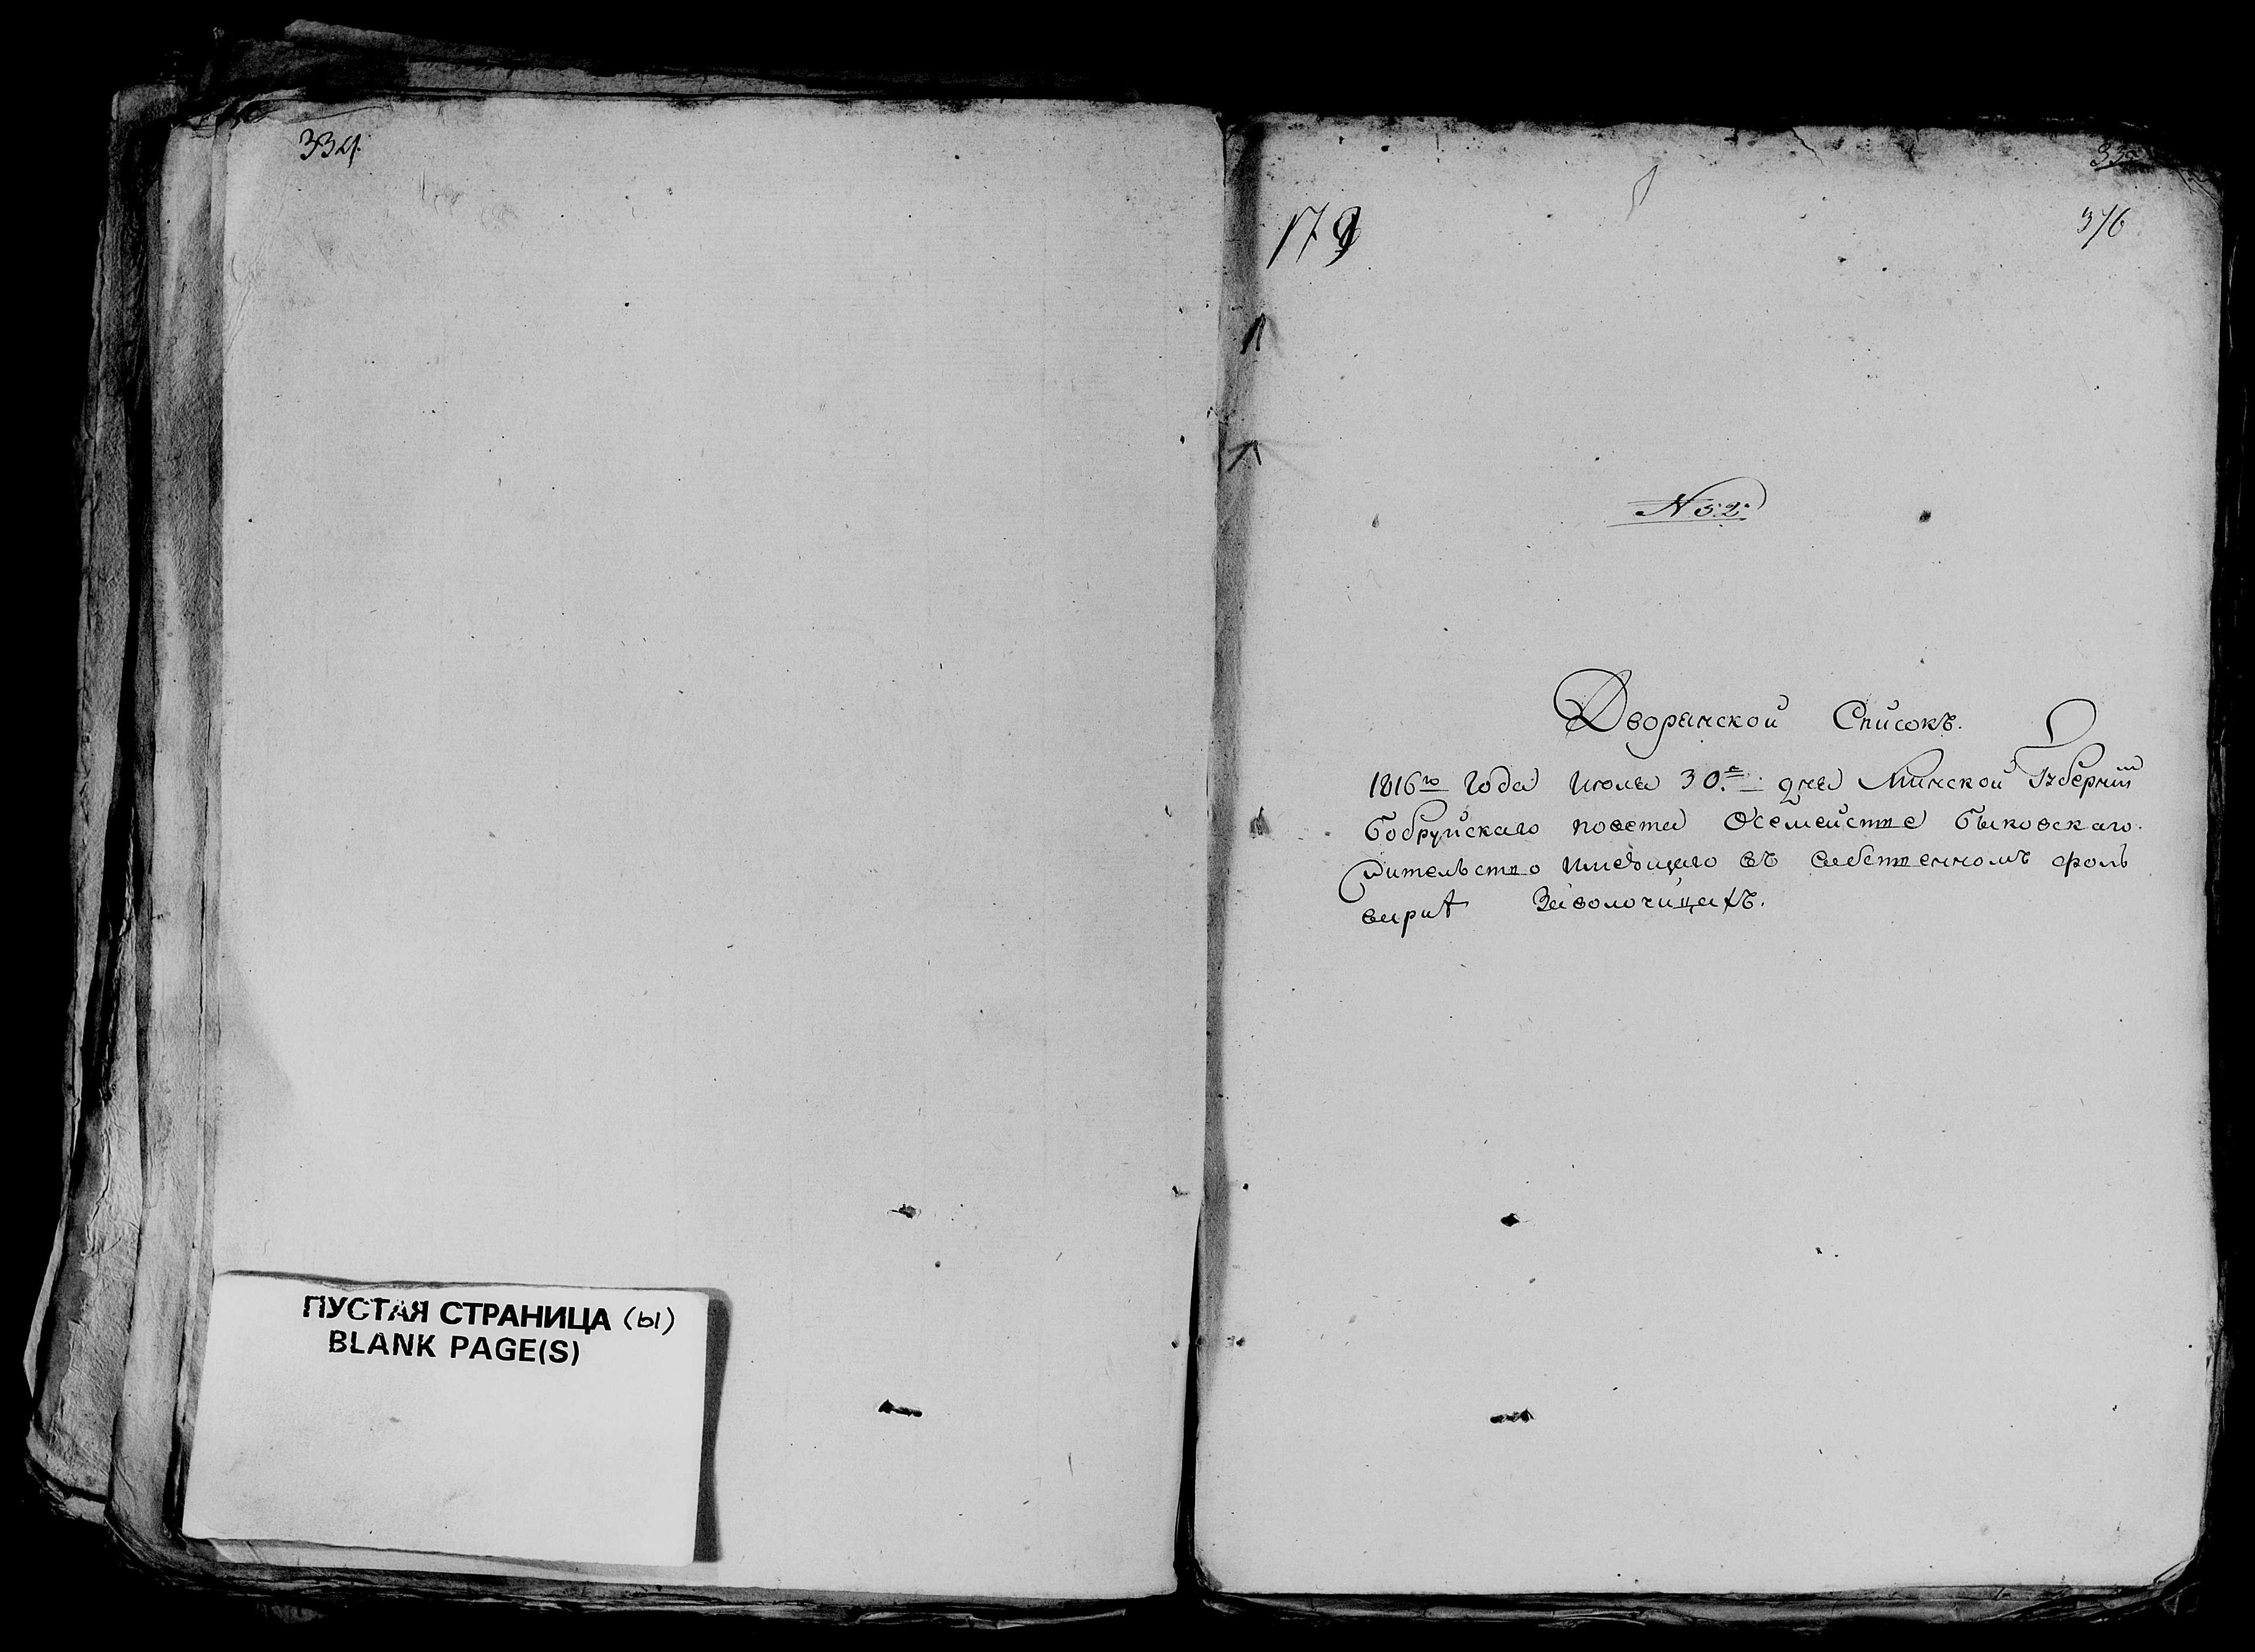 334.
ПУСТАЯ СТРАНИЦА (ы)
BLANK PAGE(S)
335
179
376
N 52.
Дворянской Списокъ.
1816го Года Июля 30.е дня Минской Губернiи
Бобруйскаго повета Осемействе Быковскаго.
Жительство имеющаго въ собственномъ фоль
варкѣ Заволочицахъ.